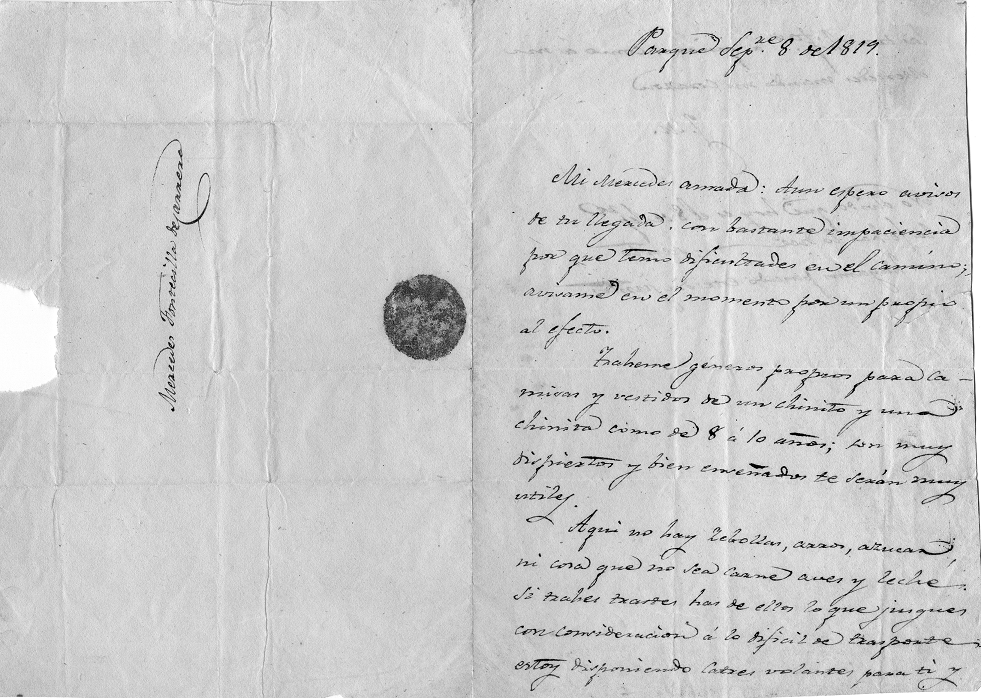 Mercedes Fonsecilla de Carrera
Parque Sep.re 8 de 1819.
Mi Mercedes amada: Aun espero avisos
de tu llegada. con bastante impaciencia
por que temo dificultades en el camino;
avisame en el momento por un propio
al efecto.
Traheme géneros propios para ca-
misas y vestidos de un chinito y una
chinita como de 8 á 10 años; son muy
dispiertos y bien enseñados te serán muy
utiles.
Aqui no hay zebollas, arros, azucar,
ni cosa que no sea carne aves y leche.
Si trahes trastes has de ellos lo que jusgues
con consideracion á lo dificil de trasporte
estoy disponiendo catres volantes para ti y